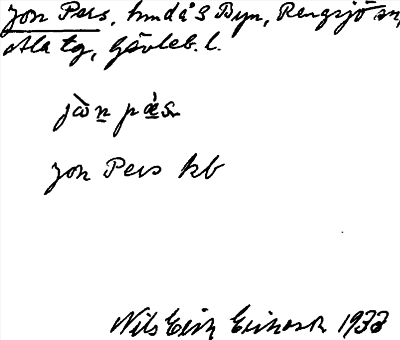 Jon Pers, hmd å S Byn, Rengsjö sn,
Ala tg, Gävleb. l.
jòn pæ̀s
Jon Pers kb
Nils Eric Ericson 1933